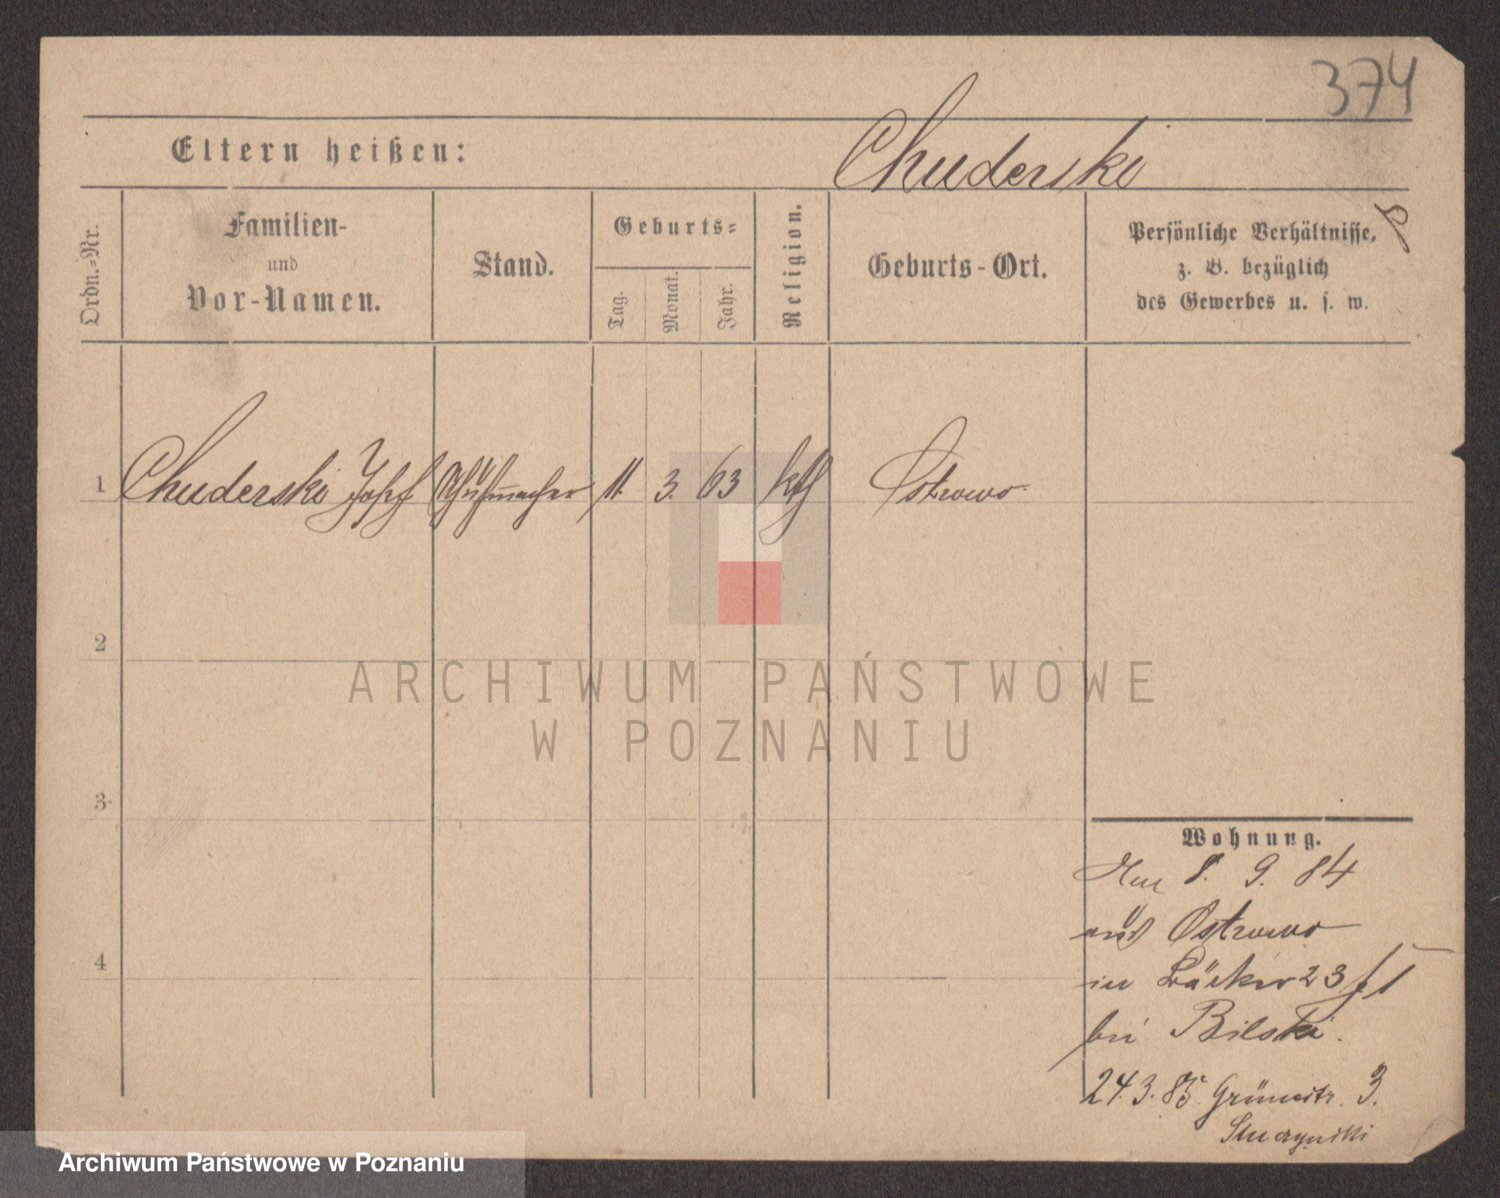 374
Chuderski
Eltern heißen:
Ordn.-Nr.
Familien-
und
Vor-Namen.
Stand.
Geburts-
Tag.
Monat.
Jahr.
Religion.
Geburts-Ort.
Persönliche Verhältnisse,
z. B. bezüglich
des Gewerbes u. s. w.
1 Chuderski Josef Schuhmacher 11. 3. 63 kth Ostrowo
2
3
4
ARCHIWUM PAŃSTWOWE
W POZNANIU
Wohnung.
8. 9. 84
aus Ostrowo
in Bäcker 23
bei Bilski.
24. 3. 85. Grünestr. 3.
Archiwum Państwowe w Poznaniu